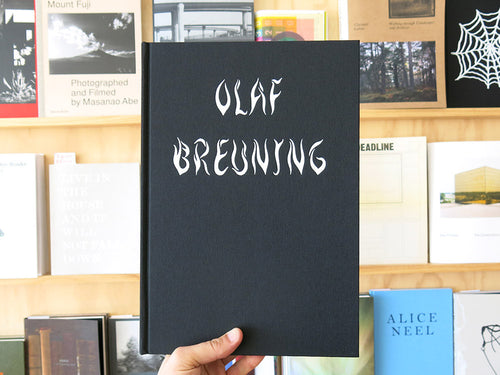 Mount Fuji
Photographed
and Filmed
by Masanao Abe
OLAF
BREUNING
DEADLINE
LIVE IN
THE
HOUSE
AND IT
WILL
NOT FALL
DOWN
ALICE
NEEL